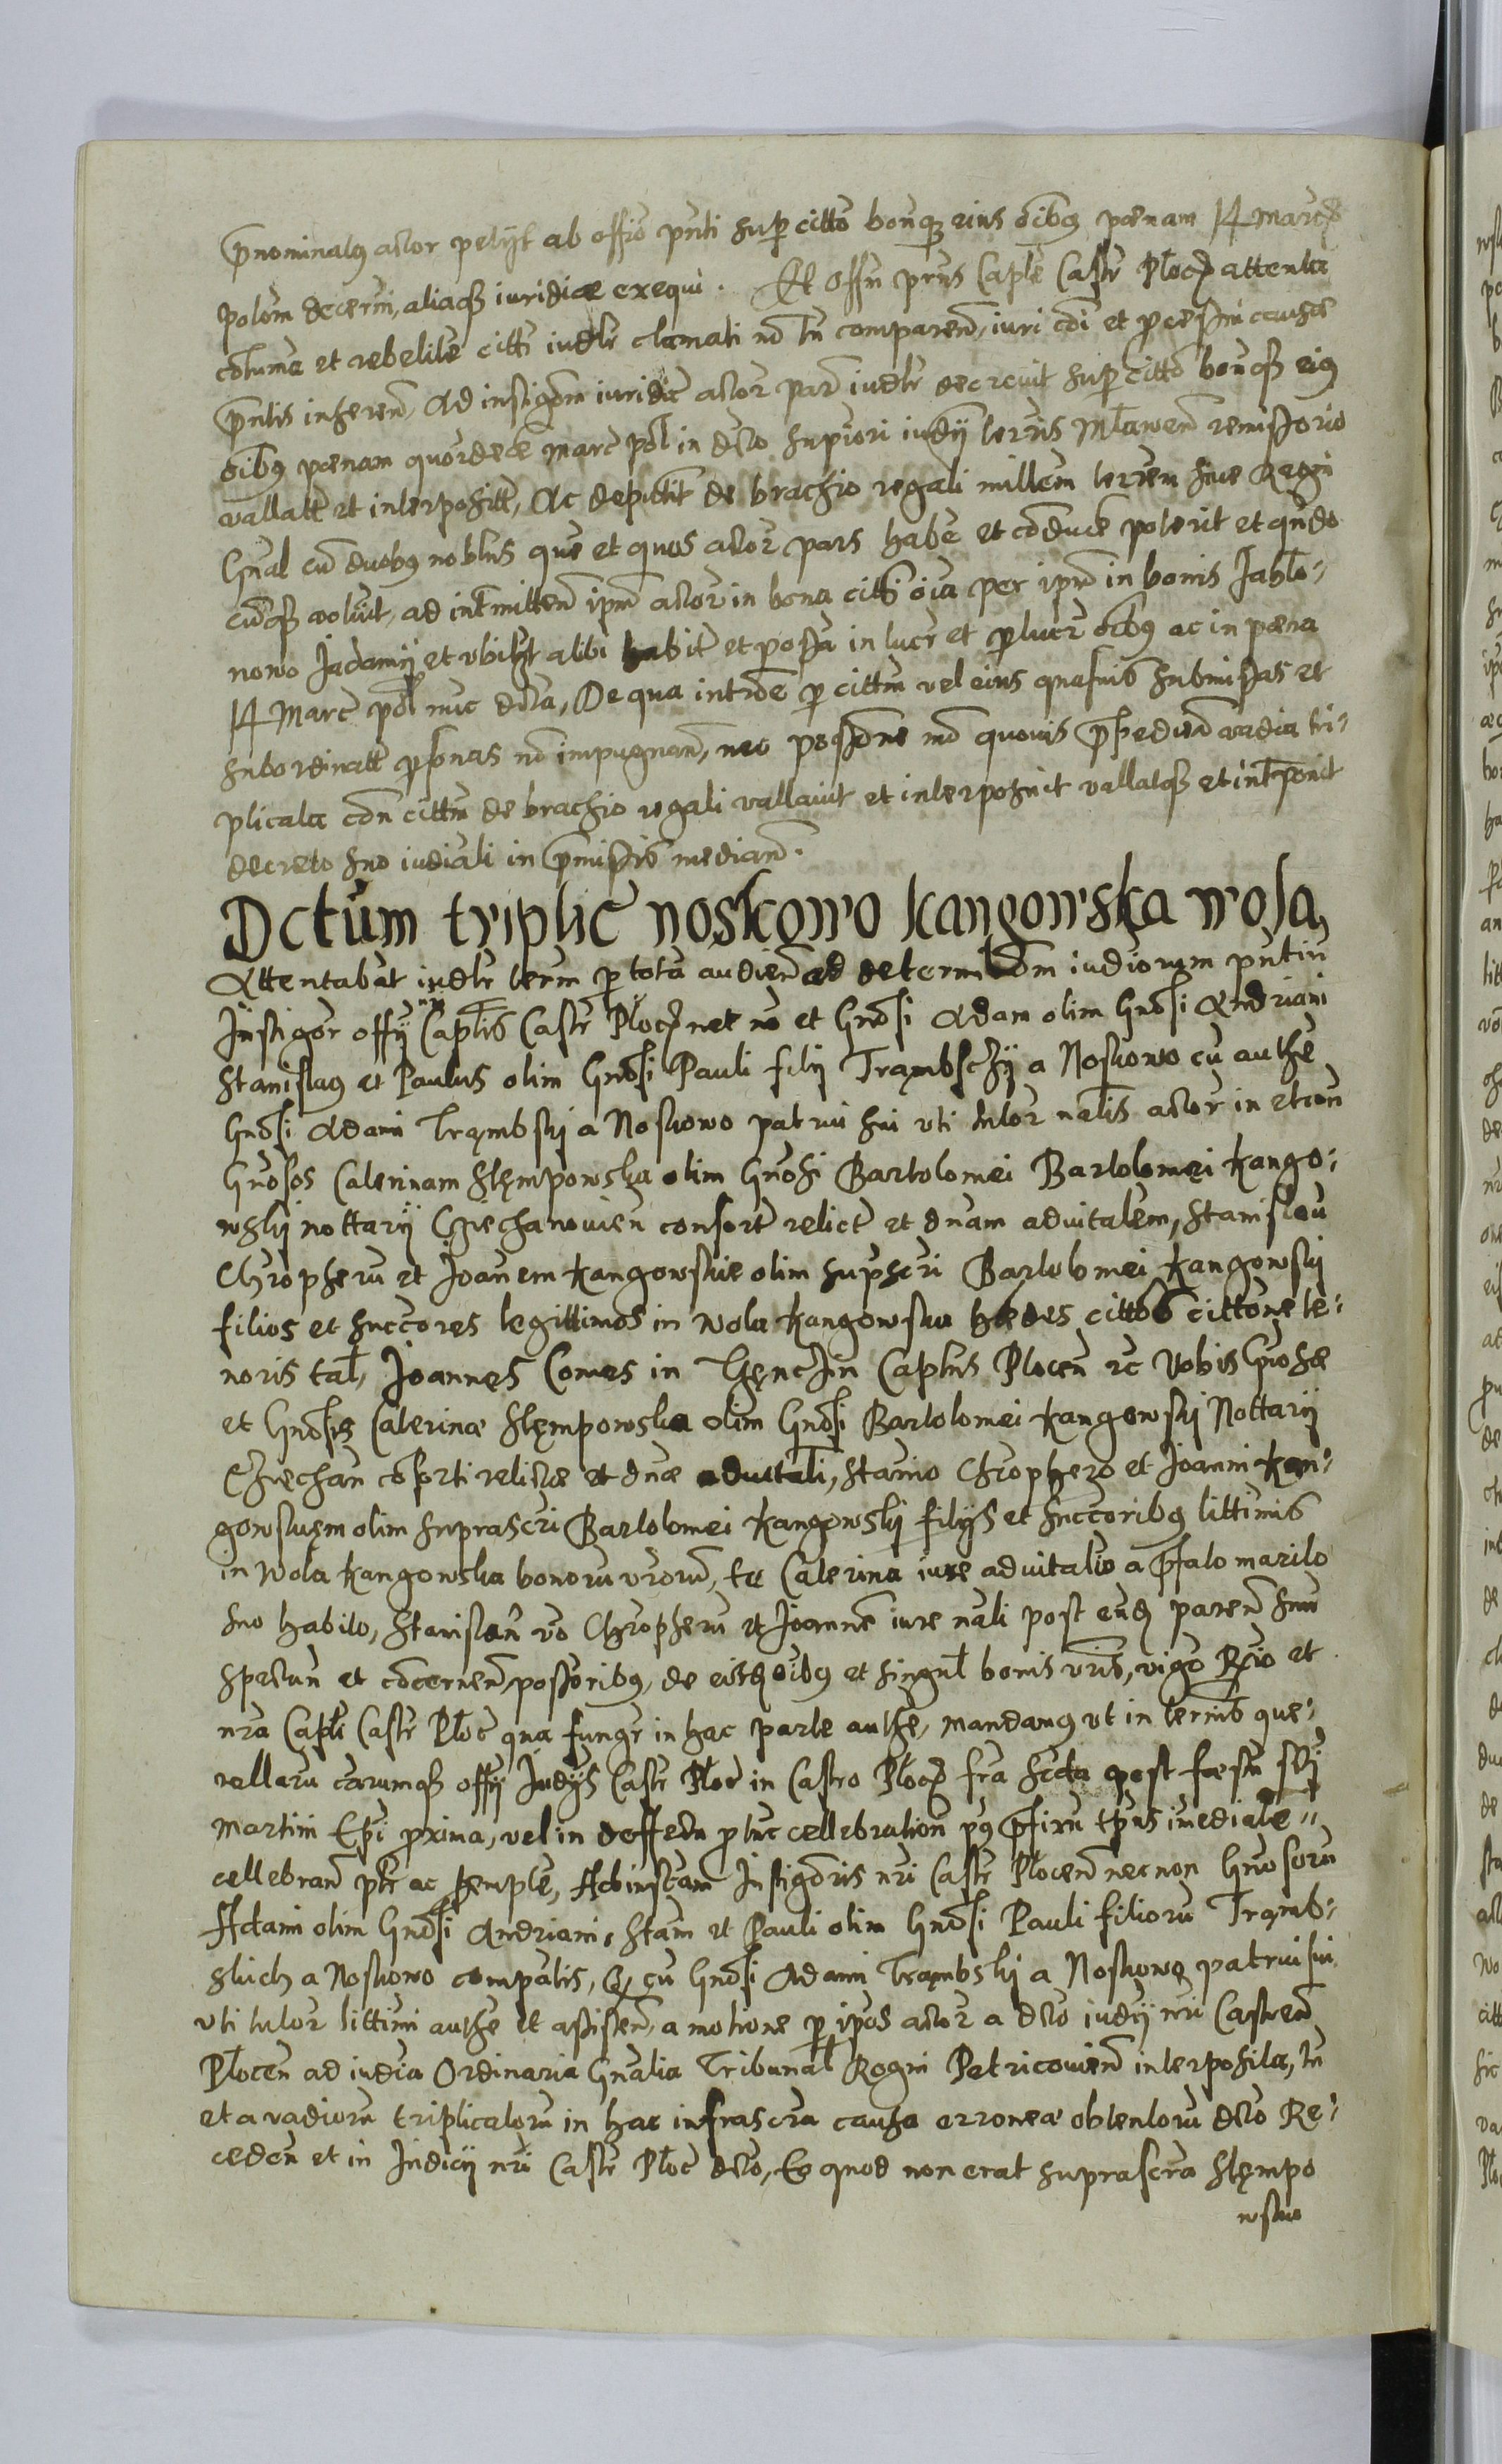 prnominatus actor petyt ab offio pnti super citto bonisq eius oibus poenam 14 marcas
polom decerni, aliaq iuridice exequi. Et Offm prns Caple Castr Plocz attenta
cotuma et rebelite citti iudlr clamati no tn comparen, iuri coi et processui causae
prntis inheren, Ad instigom iuridic actor par iudlr decrevit super citto bonisq eius
oibus poenam quordece marc pol in dcto supiori iudy terris Mlawen remissorio
vallatt et interpositt, Ac deputtit de brachio regali millem terren sive Regni
Gnal cu duobus noblus que et quos actor pars habe et conduce poterit et qndo
cuq volvit, ad intmitten ipm actor in bona citti oia per ipm in bonis Jablo-
nowo Jadamy et ubiqt alibi habit et possa in lucr et perlucr oibus ac in poena
14 Marc pol nuc dcta, De qua introe per cittm vel eius quasuis submissas et
subordinatt personas no impugnan, nec possone mo quovis prhedien vadia tri-
plicata con cittm de brachio regali vallavit et interposuit vallatq et intponit
decreto suo iudiciali in prmissis median.
Dctum triplic noskowo kangowska wola,
Attentabat iudlr term per tota audien ad determinaom iudiorum pntiu
Instigor offy nri Capltis Castr Plocz nec no et Gnosi Adam olim Gnosi Andriani
Stanislaus et Paulus olim Gnosi Pauli filij Trąmbsczy a Noskowo cu authe
Gnosi Adami Trąmbski a Noskowo patrui sui uti tutor nalis actor in et con
Gnosos Caterinam Stępowska olim Gnosi Bartolomei Bartolomei Kango-
wskij nottarij Cziechanovien consort relict et dnam advitalem, Stanislau
Chropheru et Joanem Kangowskie olim supscri Bartolomei Kangowskij
filios et succores legittimos in Wola Kangowska haedes cittos cittone te-
noris tal, Joannes Comes in Thęnczin Capltus Plocen rc Vobis Gnosae
et Gnosis Caterinae Stęmpowska olim Gnosi Bartolomei Kangowskij Nottarij
Cziechan cosorti relictae et dnae advitali, Stanio Chrophero et Joanni Kan-
gowskięm olim suprascri Bartolomei Kangowskij filijs et succoribus littimis
in Wola Kangowska bonoru vroru, te Caterina iure advitalio a prfato marito
suo habito, Stanislau vo Chropheru et Joanne iure nali post eud paren suu
spectan et concernen, possoribus, de eisd oibus et singul bonis vris, vigo Rio et
nra Capli Castr Ploc qua fungr in hac parte authe, mandamus ut in termis que-
rellaru carumq offy Judys Castr Ploc in Castro Plocz fra scda post festu sti
Martini Epi proxima, vel in deffectu protuc cellebration pus prfixu tpus imediate
cellebran pltr ac perempte, Ad instam Instigoris nri Castr Plocen nec non Gnosoru
Adami olim Gnosi Andriani, Stani et Pauli olim Gnosi Pauli filioru Trąmb-
skich a Noskowo compatis, cu Gnosi Adami Trąmbski a Noskowo patrui sui
uti tutor littimi authe et assisten, a motione per ipos actor a dcto iudij nri Castren
Plocen ad iudia Ordinaria Gnalia Tribunal Regni Petricovien interposita, tn
et a vadioru triplicatoru in hac infrascra causa erronea obtentoru dcto Re-
ceden et in Judicij nri Castr Ploc dcto, Eo quod non erat suprascra Stęmpo
wska